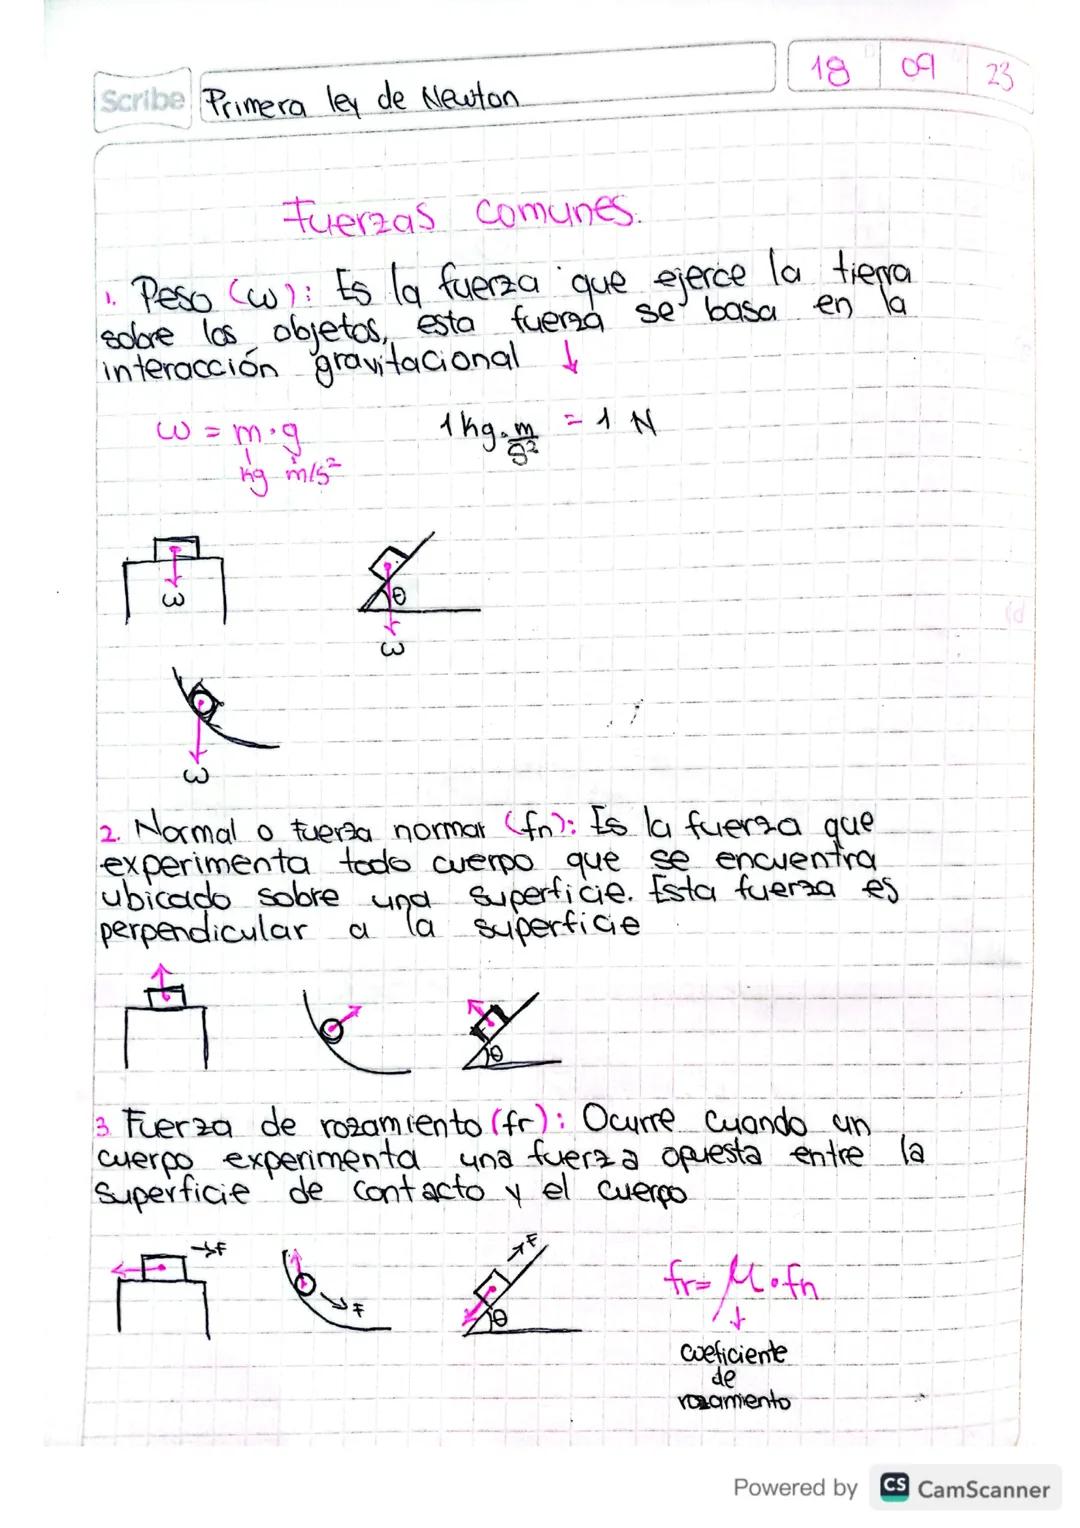 18 09 23
Scribe Primera ley de Newton
Fuerzas comunes.
1. Peso (ω): Es la fuerza que ejerce la tierra
sobre los objetos, esta fuerza se basa en la
interacción gravitacional ↓
ω = m·g 1 kg·m/s² = 1 N
kg m/s²
ω
θ
ω
ω
2. Normal o fuerza normal (fn): Es la fuerza que
experimenta todo cuerpo que se encuentra
ubicado sobre una superficie. Esta fuerza es
perpendicular a la superficie
θ
3. Fuerza de rozamiento (fr): Ocurre cuando un
cuerpo experimenta una fuerza opuesta entre la
superficie de contacto y el cuerpo
→F
F
F
θ
fr = μ·fn
coeficiente
de
rozamiento
Powered by CS CamScanner